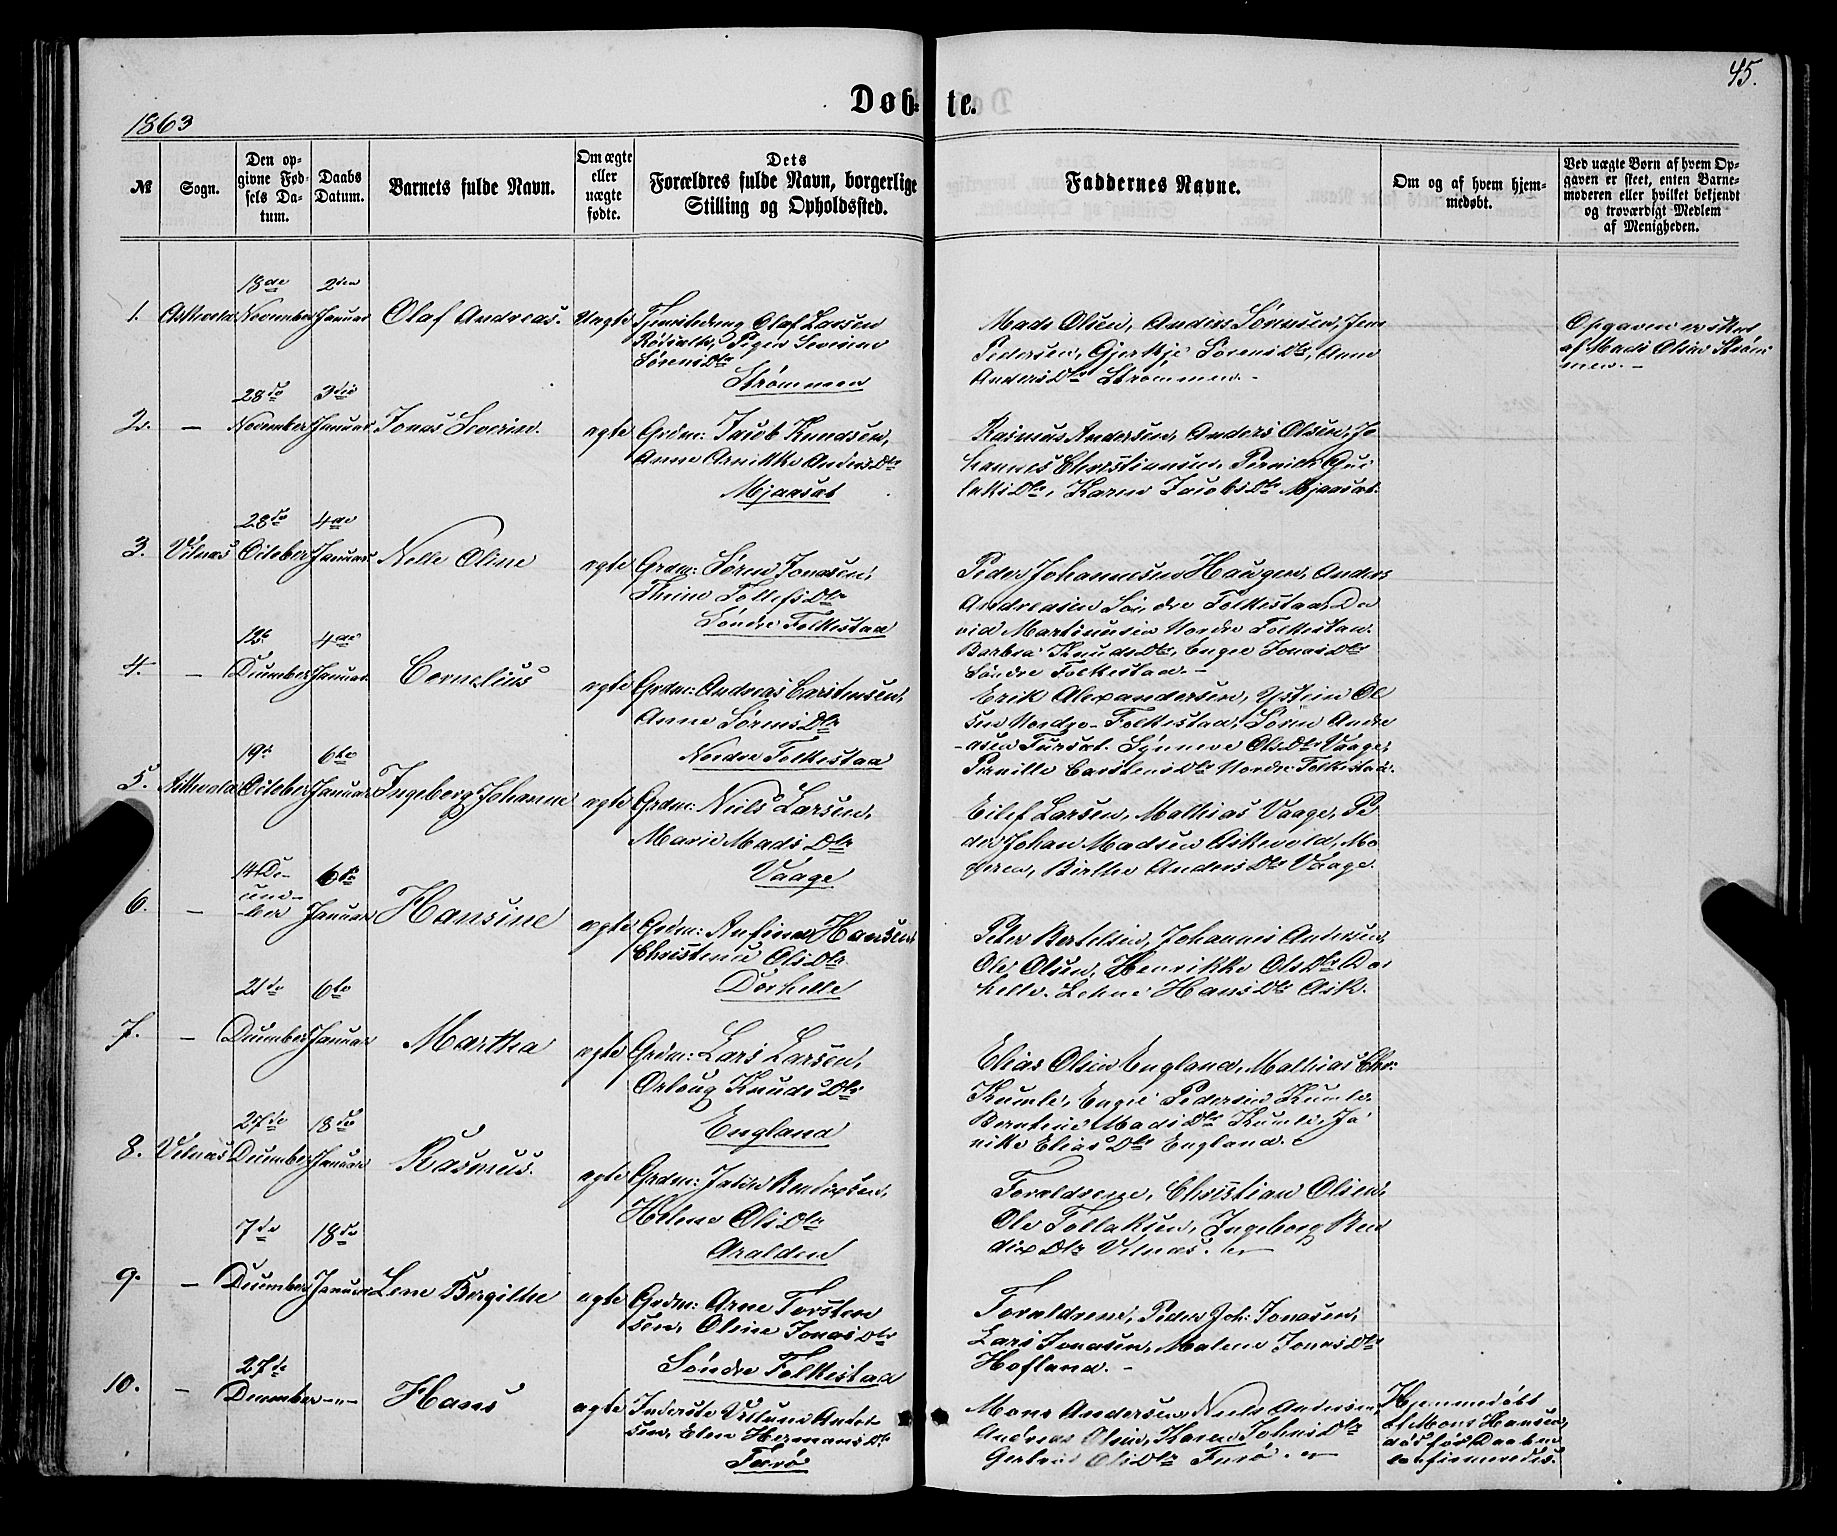 45.
Døbte.
1863
№
Sogn.
Den op-
givne Fød-
sels Da-
tum.
Daabs
Datum.
Barnets fulde Navn.
Om ægte
eller
uægte
fødte.
Dets
Forældres fulde Navn, borgerlige
Stilling og Opholdssted.
Faddernes Navne.
Om og af hvem hjem-
medøbt.
Ved uægte Børn af hvem Op-
gaven er skeet, enten Barne-
moderen eller hvilket bekjendt
og troværdigt Medlem
af Menigheden.
18de 2den
1. Askevold November Januar Olaf Andreas. Uægte Olaf Larsen
Pigen Severine
Sørens Dtr
Strømmen
Mads Olsen, Anders Sørensen, Jens
Pedersen, Gjertje Sørens Dtr, Anne
Anders Dtr Strømmen.
Opgaven er skeet
af Mads Olsen Strøm
men.
28de 3die
2. — November Januar Jonas Severin. ægte Grdm: Jacob Knudsen,
Anne Arnikke Anders Dtr
Mjaaset
Rasmus Andersen, Anders Olsen, Jo
hannes Christiansen,
Karen Jacobs Dtr Mjaaset.
28de 4de
3. Vilnæs October Januar Nelle Oline ægte Grdm: Søren Jonasen,
Thrine Tollefs Dtr
Søndre Folkestad
Peder Johannesen Haugen, Anders
Andreasen Søndre Folkestad, Da
vid Martinusen Nordre Folkestad.
Barbra Knuds Dtr, Engel Jonas Dtr
Søndre Folkestad.
12te 4de
4. — December Januar Cornelius ægte Grdm: Andreas Carstensen,
Anne Sørens Dtr
Nordre Folkestad
Erik Alexandersen, Østein Ol
sen Nordre Folkestad, Søren Andre
asen Furset. Synneve Ols Dtr Vaage,
Pernille Carstens Dtr Nordre Folkestad.
19de 6te
5. Askevold October Januar Ingeborg Johanne ægte Grdm: Niels Larsen,
Marie Mads Dtr
Vaage
Eilef Larsen, Mathias Vaage, Pe
der Johan Madsen Askevold, Mo
deren, Birthe Anders Dtr Vaage.
14 De- 6te
cem-
6. — ber Januar Hansine ægte Grdm: Anfind Hansen,
Christense Ols Dtr
Dorhelle
Peter Bertelsen, Johannes Andersen,
Ole Olsen, Henrikke Ols Dtr Dor
helle. Lehne Hans Dtr Ask.
21de 6te
7. — December Januar Martha ægte Grdm: Lars Larsen,
Orloug Knuds Dtr
England
Elias Olsen England, Mathias Chr:
Kumle, Engel Pedersen Kumle.
Berntine Mads Dtr Kumle, Ja
nike Elias Dtr England.
27de 18de
8. Vilnæs December Januar Rasmus. ægte Grdm: Jacob Bendixsen,
Helene Ols Dtr
Aralden
Forældrene, Christian Olsen,
Ole Tollaksen, Ingeborg Ben
dix Dtr Vilnæs.
7de 18de
9. — December Januar Lene Bergithe ægte Grdm: Arne Torsten
sen, Oline Jonas Dtr
Søndre Folkestad
Forældrene, Peder Joh: Jonasen,
Lars Jonasen, Malene Jonas Dtr
Hofland.
27de
10. — December —"— Hans ægte Inderste Andre
sen, Elen Hermans Dtr
Furø
Mons Andersen, Niels Andersen,
Andreas Olsen, Karen Johns Dtr
Gertrud Ols Dtr Furø.
Hjemmedøbt
af Mons Hansen,
død før Daaben
confirmeredes.